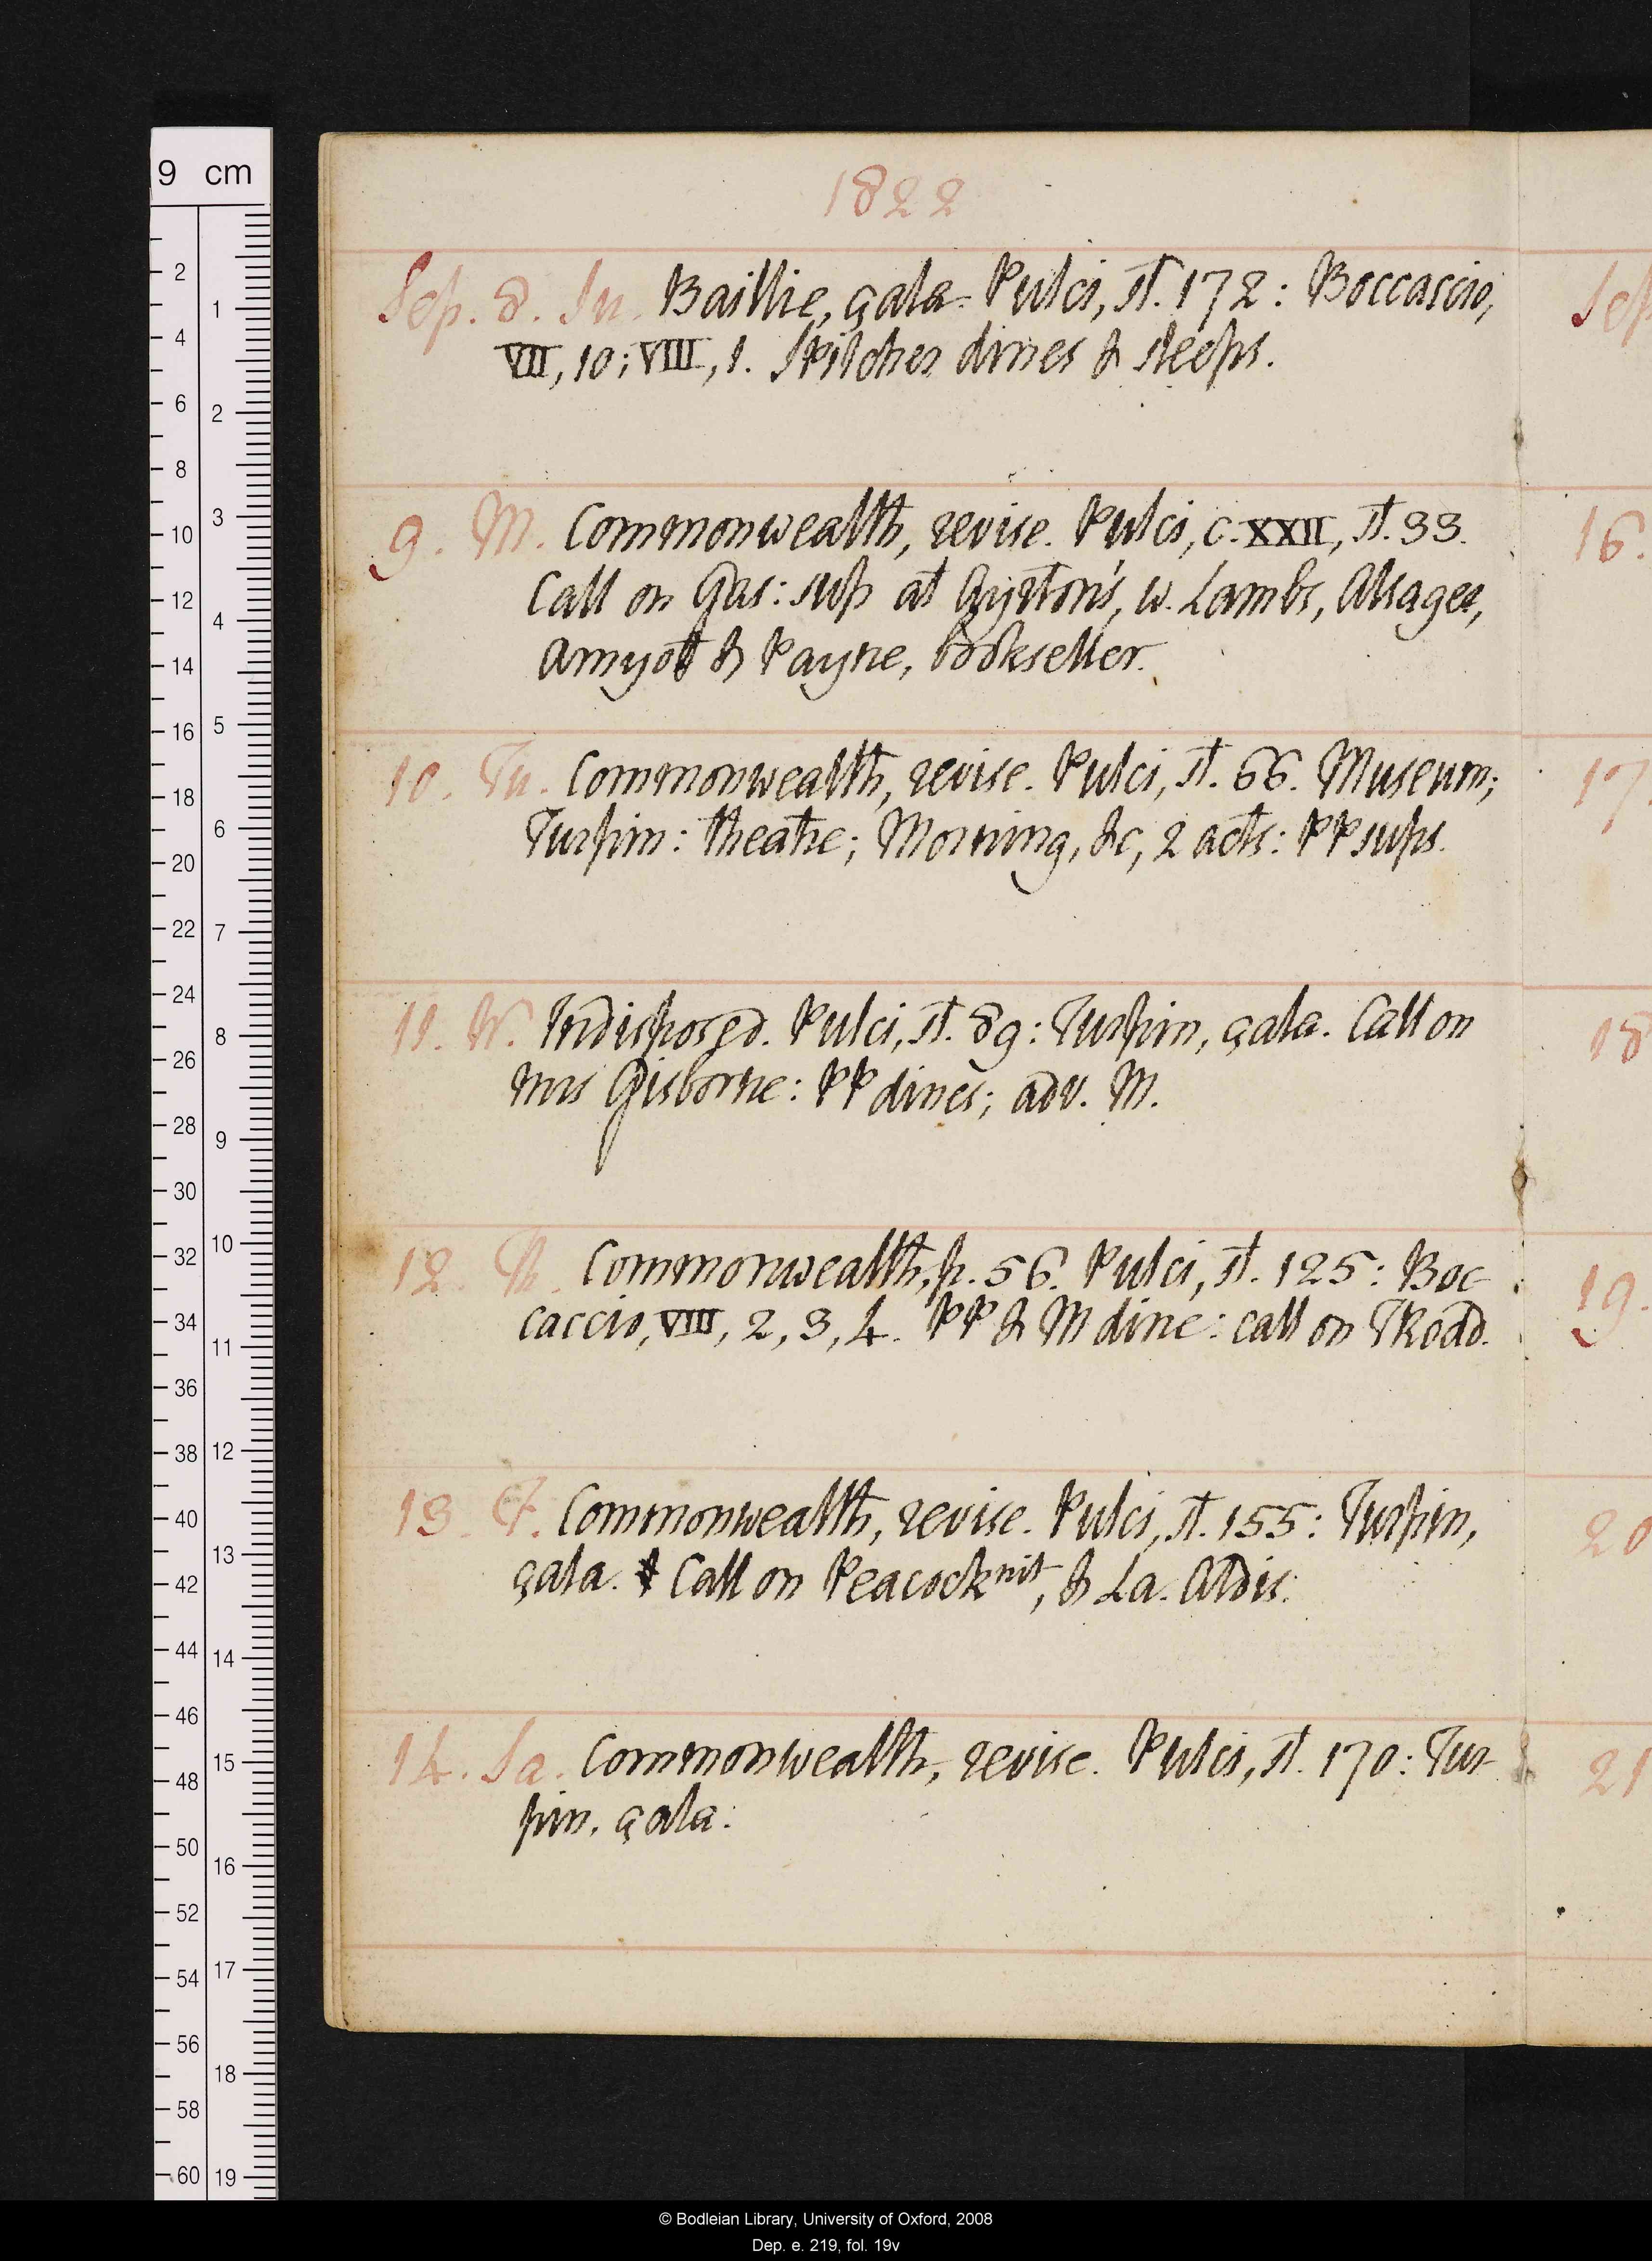 1822
Sep. 8. Su. Baillie, çala. Pulci, st. 172: Boccaccio,
VII, 10; VIII, 1. S Pilcher dines & sleeps.
9. M. Commonwealth, revise. Pulci, c. XXII, st. 33.
Call on Gas: sup at Ayrton's, w. Lambs, Alsager,
Amyot & Payne, bookseller.
10. Tu. Commonwealth, revise. Pulci, st. 66. Museum;
Turpin: theatre; Morning, &c, 2 acts: PP sups.
11. W. Indisposed. Pulci, st. 89: Turpin, çala. Call on
Mrs Gisborne: PP dines; adv. M.
12. Th. Commonwealth, p. 56. Pulci, st. 125: Boc-
caccio, VIII, 2, 3, 4. PP & M dine: call on TRodd.
13. F. Commonwealth, revise. Pulci, st. 155: Turpin,
çala. Call on Peacock nit, & La. Aldis.
14. Sa. Commonwealth, revise. Pulci, st. 170: Tur-
pin, çala.
Sep
16.
17
18
19.
20
21
9 cm
2
4
6
8
10
12
14
16
18
20
22
24
26
28
30
32
34
36
38
40
42
44
46
48
50
52
54
56
58
60
1
2
3
4
5
6
7
8
9
10
11
12
13
14
15
16
17
18
19
© Bodleian Library, University of Oxford, 2008
Dep. e. 219, fol. 19v